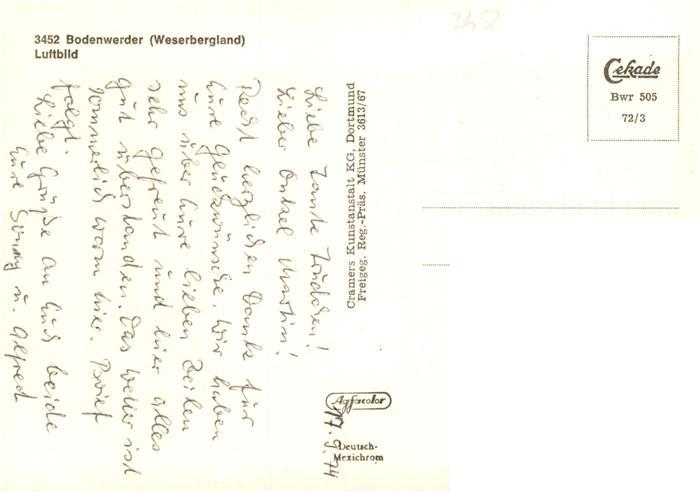 3452 Bodenwerder (Weserbergland)
Luftbild
3452
Cekade
Bwr 505
72/3
Cramers Kunstanstalt KG, Dortmund
Freigeg. Reg.-Präs. Münster 3613/67
Agfacolor
Deutsch-
Mexichrom
17.9.74
Liebe Tante Trudchen!
Lieber Onkel Martin!
Recht herzlichen Dank für
Eure Glückwünsche. Wir haben
uns über Eure lieben Zeilen
sehr gefreut und hier alles
gut überstanden. Das Wetter ist
sommerlich warm hier. Brief
folgt.
Liebe Grüße an Euch beide
Eure u. Alfred